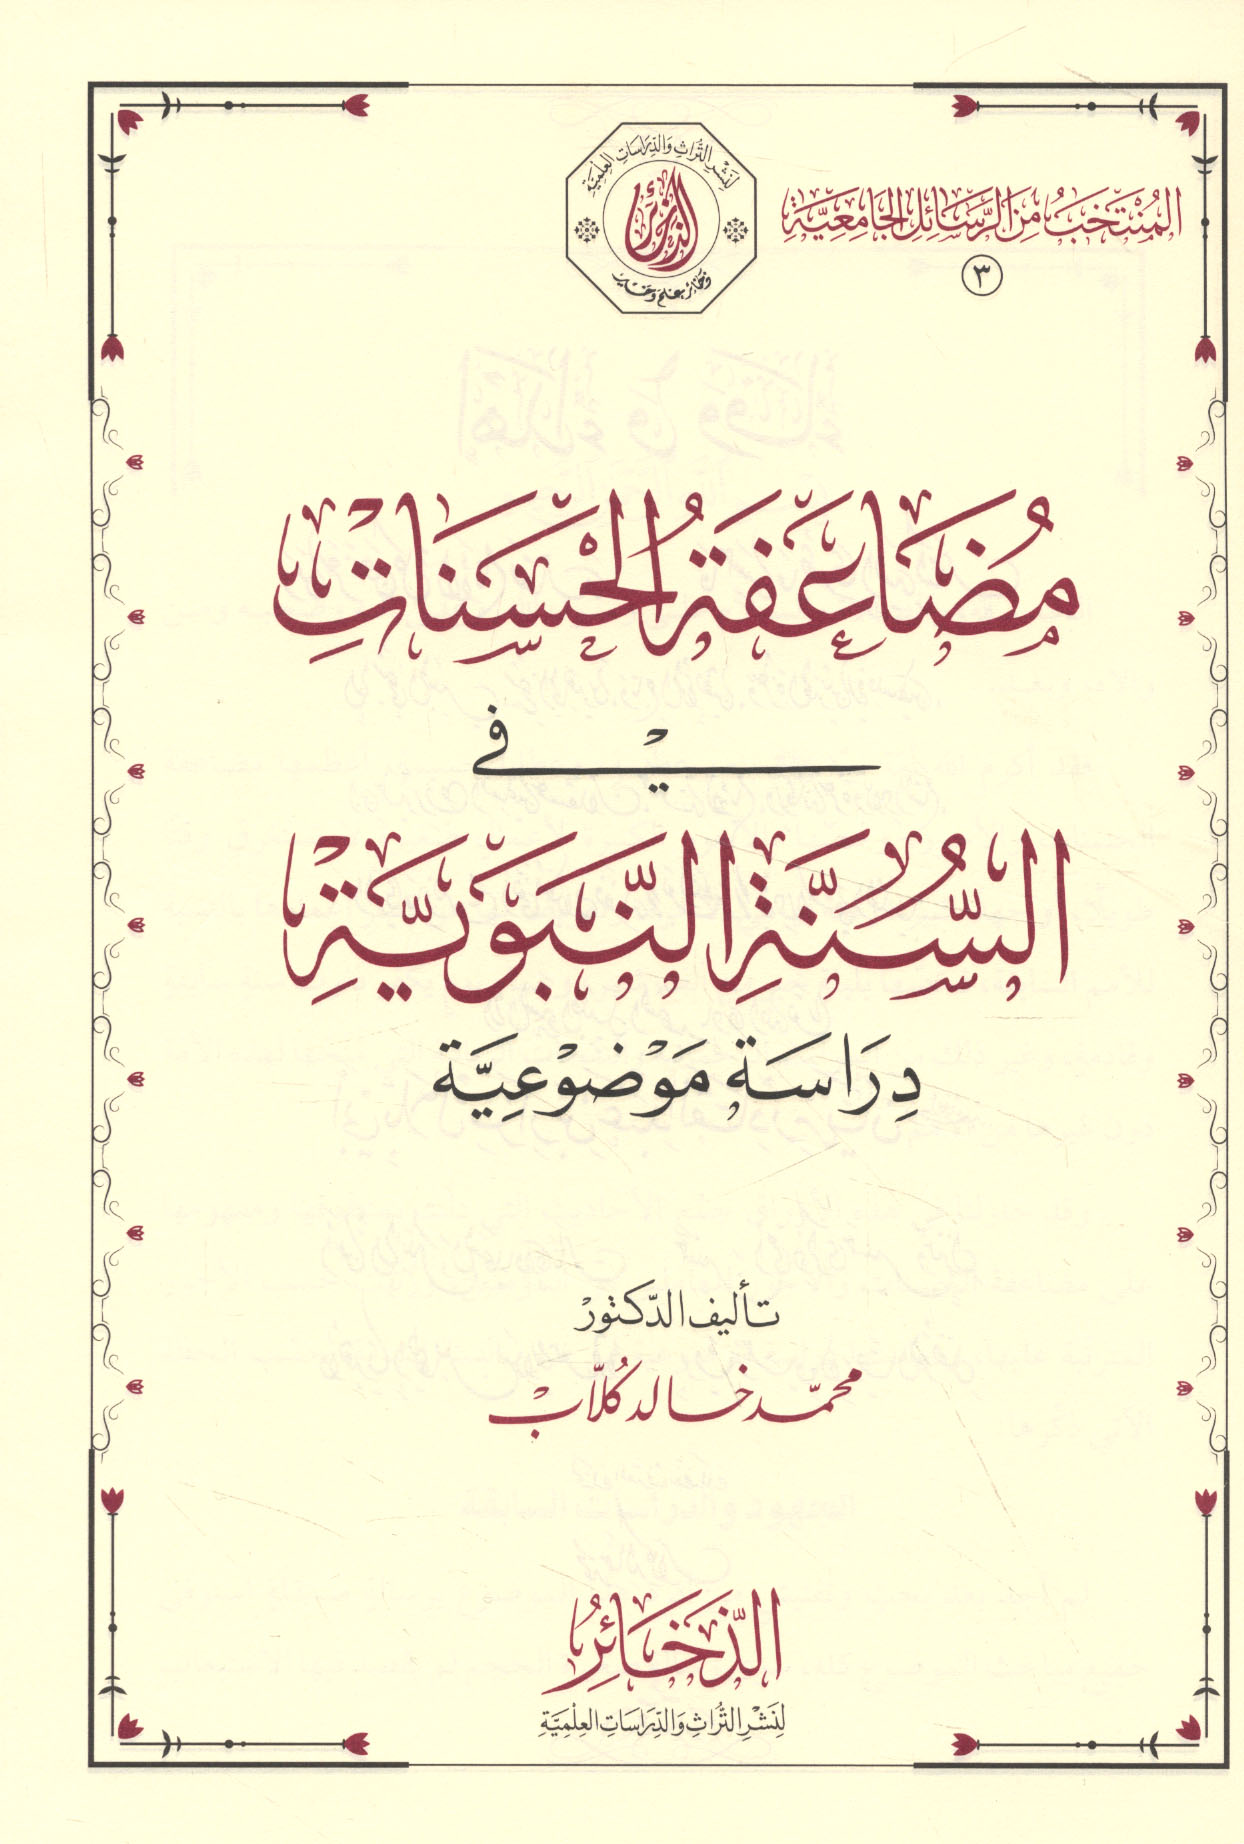 المُنْتَخَبُ مِنَ الرَّسَائِلِ الجَامِعِيَّةِ
٣
لِنَشْرِ التُّرَاثِ وَالدِّرَاسَاتِ العِلْمِيَّةِ
الذخائر
ذخائر علم وخير
مُضَاعَفَةُ الحَسَنَاتِ
فِي
السُّنَّةِ النَّبَوِيَّةِ
دِرَاسَة مَوْضُوْعِيَّة
تأليف الدّكتورْ
محمّد خالد كُلّابْ
الذَّخَائِرُ
لِنَشْرِ التُّرَاثِ وَالدِّرَاسَاتِ العِلْمِيَّةِ